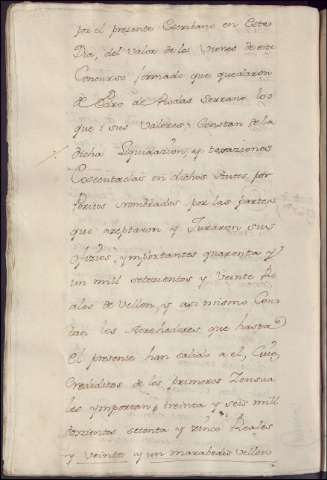 por el presente Escribano en este
Dia, del valor de los vienes de este
Concurso formado que quedaron
de Pedro de Rodas Serrano los
que i sus valores, Constan de la
dicha Liquidazion, y tasaziones
Executadas en dichos Autos, por
Peritos nombrados por las partes
que azeptaron y Juraron sus
ofizios, ymportantes quarenta y
un mill setezientos y veinte Re
ales de Vellon, y asi mismo Cons
tan los Acrehedores que hasta
el presente han salido a el, Cuios
Creditos de los primeros Zensua
les ymportan, treinta y seis mill
trezientos setenta y zinco Reales
y veinte y un maravedis vellon